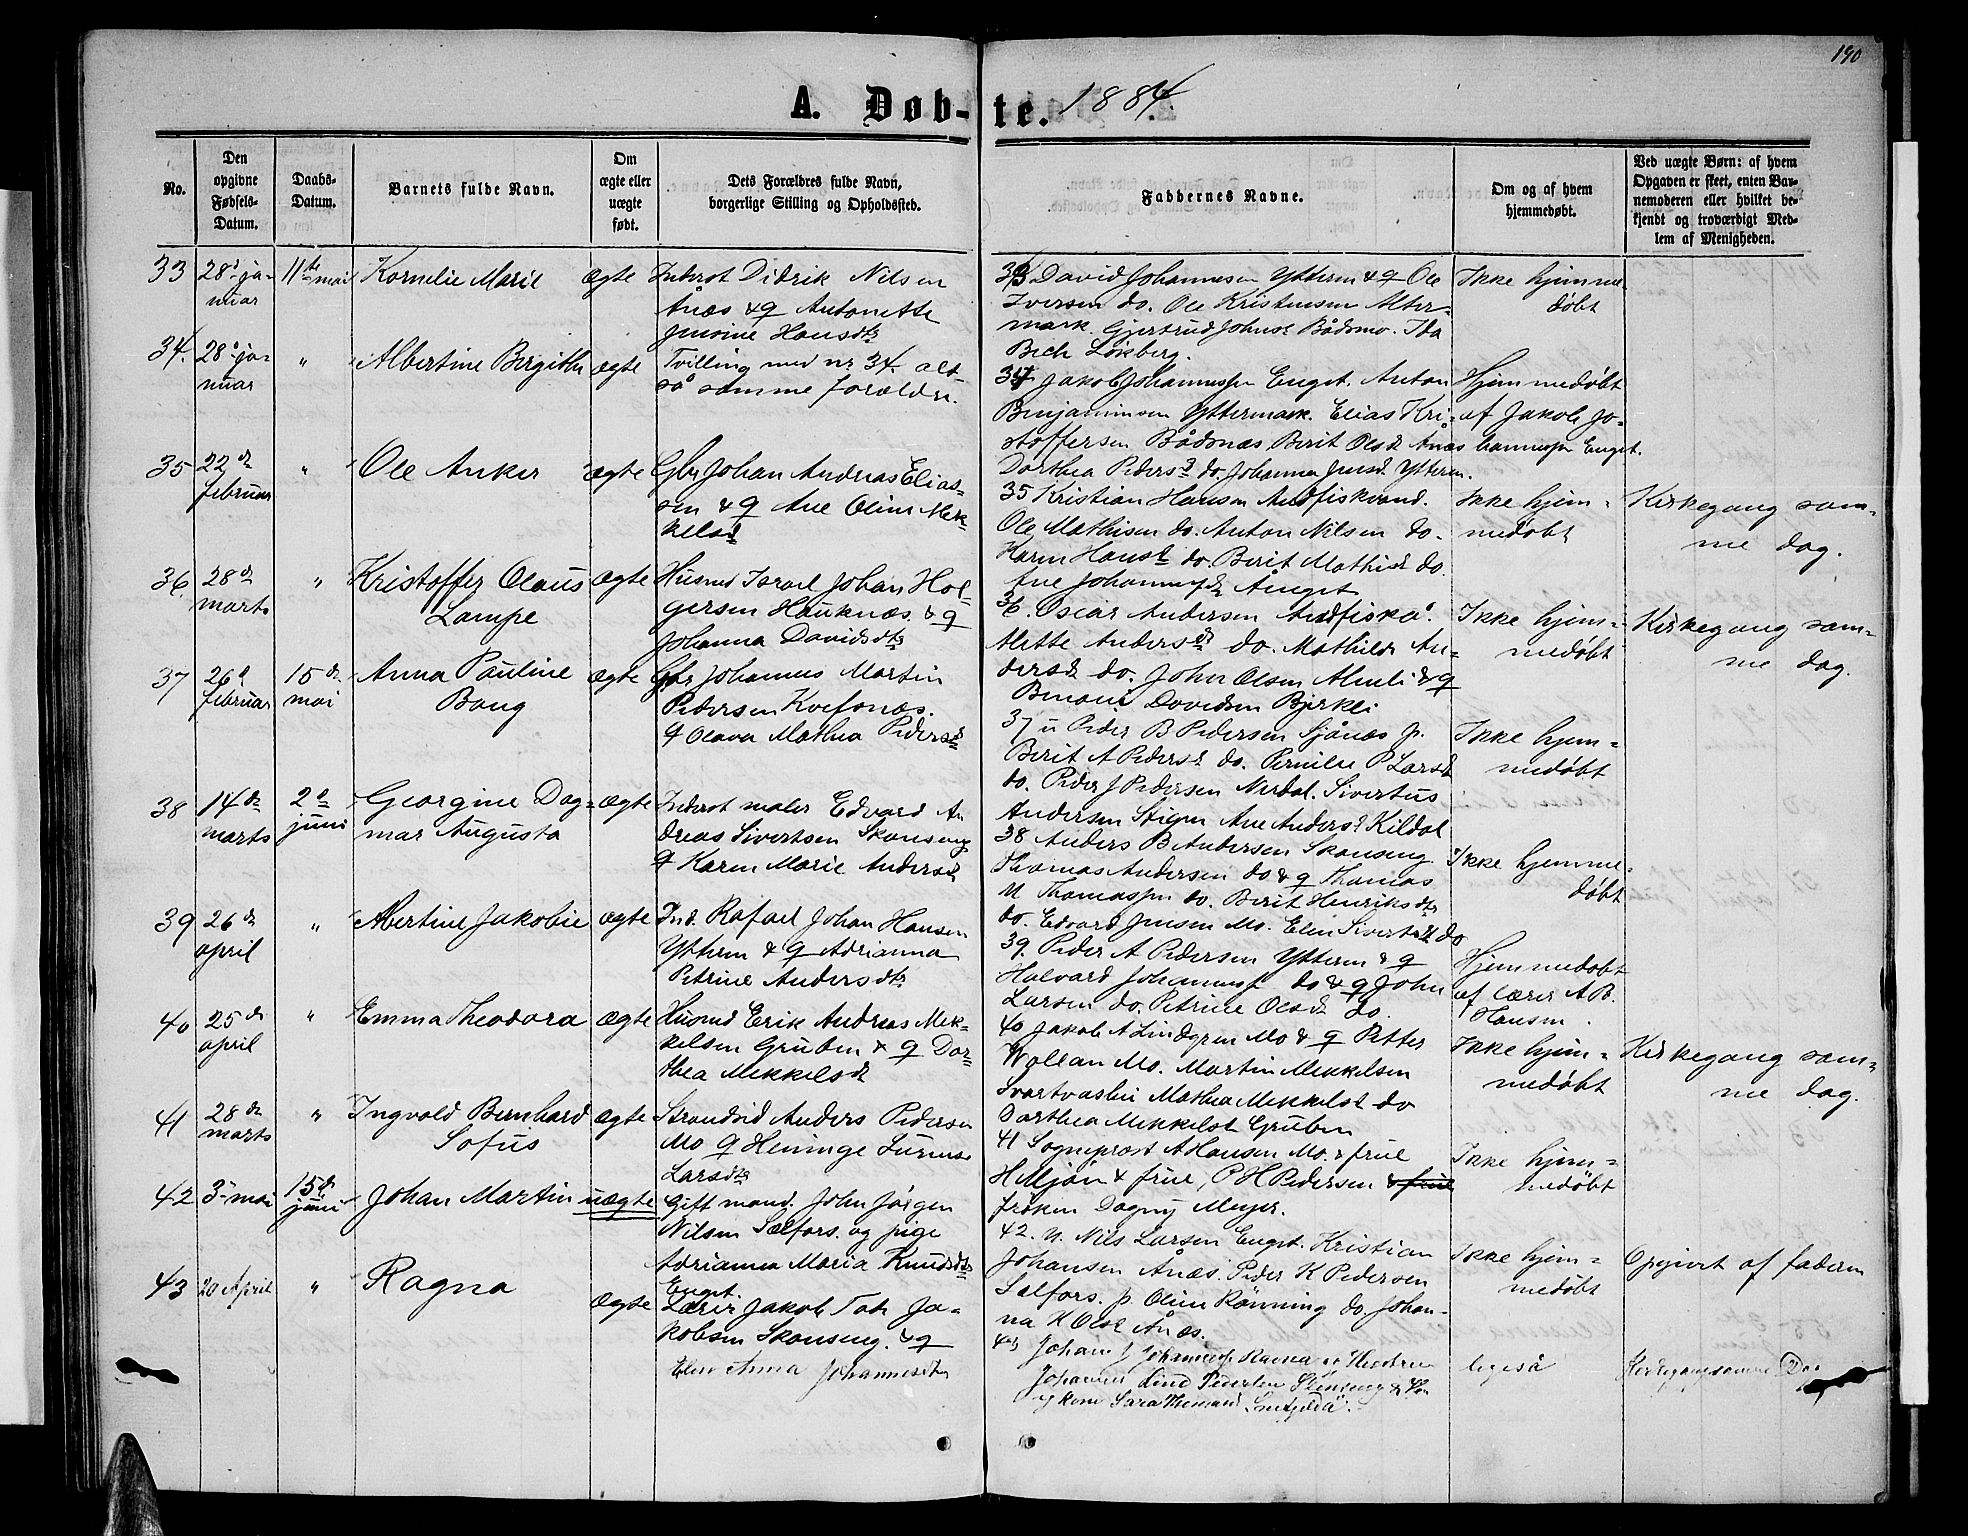 190
A. Døb-te. 1884.
No.
Den opgivne Fødsels-Datum.
Daabs-Datum.
Barnets fulde Navn.
Om ægte eller uægte født.
Dets Forældres fulde Navn, borgerlige Stilling og Opholdssted.
Faddernes Navne.
Om og af hvem hjemmedøbt.
Ved uægte Børn: af hvem Opgaven er skeet, enten Barnemoderen eller hvilket bekjendt og troværdigt Medlem af Menigheden.
33 28d ja-
nuar
11te mai
Kornelie Marie
ægte
Inderst Didrik Nilsen
Ånæs & q Antonette
Jensine Hansdtr
33 David Johannesen Ytteren & q Ole
Iversen do. Ole Kristensen Alter-
mark. Gjertrud Johnsd Båsmo. Ida
Bech
Ikke hjemme
døbt
34. 28d ja-
nuar
"
Albertine Birgithe
ægte
Tvilling med nr 34. alt-
så samme forældre.
34 Jakob Johannessen Enget. Anton
Benjaminsen Yttermark. Elias Kri-
stoffersen Båsnæs Berit Olsd Ånæs
Dorthea Pedersd do. Johanna Jensd Ytteren.
Hjemmedøbt
af Jakob Jo-
hannesen Enget.
35 22de
februar
"
Ole Anker
ægte
Gbr Johan Andreas Elias-
sen & q Ane Oline Mek-
kelsd
35 Kristian Hansen Andfiskvand.
Ole Mathisen do. Anton Nilsen do.
Karen Hansd do. Berit Mathisd do.
Ane Johannesd Ånget
Ikke hjem-
medøbt
Kirkegang sam-
me dag.
36. 28de
marts
"
Kristoffer Olaus
Lampe
ægte
Husmd Israel Johan Hol-
gersen Hauknæs. & q
Johanna Davidsdtr
36. Oscar Andersen Andfiskå.
Mette Andersd do. Mathilde An-
dersd do. John Olsen & q
Benoni Davidsen Bjerkli
Ikke hjem-
medøbt
Kirkegang sam-
me dag.
37 26d
februar
15de
mai
Anna Pauline
Bang
ægte
Gbr Johannes Martin
Pedersen
q Olava Mathea Pedersd
37 u Peder B Pedersen Sjånæs p.
Berit A Pedersd do. Pernille P Larsd
do. Peder J Pedersen Nerdal. Sivertus
Andersen Stigen Ane Andersd Kildal
Ikke hjem-
medøbt
38 14de
marts
2d
juni
Georgine Dag-
mar Augusta
ægte
Inderst maler Edvard An
dreas Sivertsen Skonseng
q Karen Marie Andersd
38 Anders B Andersen Skonseng
Thomas Andersen do & q Thomas
N Thomassen do. Berit Henriksdtr
do. Edvard Jensen Mo. Elen Sivertsd do
Ikke hjemme-
døbt
39 26de
april
"
Albertine Jakobie
ægte
Ind. Rafael Johan Hansen
Ytteren & q Adrianna
Petrine Andersdtr
39. Peder A Pedersen Ytteren & q
Halvard Johannesen do & q John
Larsen do. Petrine Olsd do.
Hjemmedøbt
af lærer A B.
Hansen.
40 25de
april
"
Emma Theodora
ægte
Husmd Erik Andreas Mek-
kelsen Gruben & q Dor-
thea Mekkelsd
40 Jakob A Lindgren Mo & q Petter
Wollan Mo. Martin Mekkelsen
Svartvashei Mathea Mekkelsd do
Dorthea Mekkelsd Gruben
Ikke hjem-
medøbt
Kirkegang sam-
me dag.
41 28de
marts
"
Ingvald Bernhard
Sofus
ægte
Strandsid Anders Pedersen
Mo q Heninge
Larsdtr
41 Sogneprost A Hansen Mo. & frue
H Meyer & frue, P H Pedersen & frue
frøken Dagny Meyer.
Ikke hjem-
medøbt
42 3- mai
15de
juni
Johan Martin
uægte
Gift mand. John Jørgen
Nilsen Selfors. og pige
Adrianna Maria Knudsdtr
Enget.
42. U. Nils Larsen Enget. Kristian
Johansen Ånæs. Peder K Pedersen
Selfors. p. Oline Rønning do. Johan-
na K Olsd Ånæs.
Ikke hjem-
medøbt
Opgivet af faderen
43 20 April
"
Ragna
ægte
Lærer Jakob Ja-
kobsen Skonseng. & q
Elen Anna Johannesdtr
43 Johan J Johannesen Ragna
Johannes Lind Pedersen
og kone Sara
ligeså
Kirkegang samme Dag